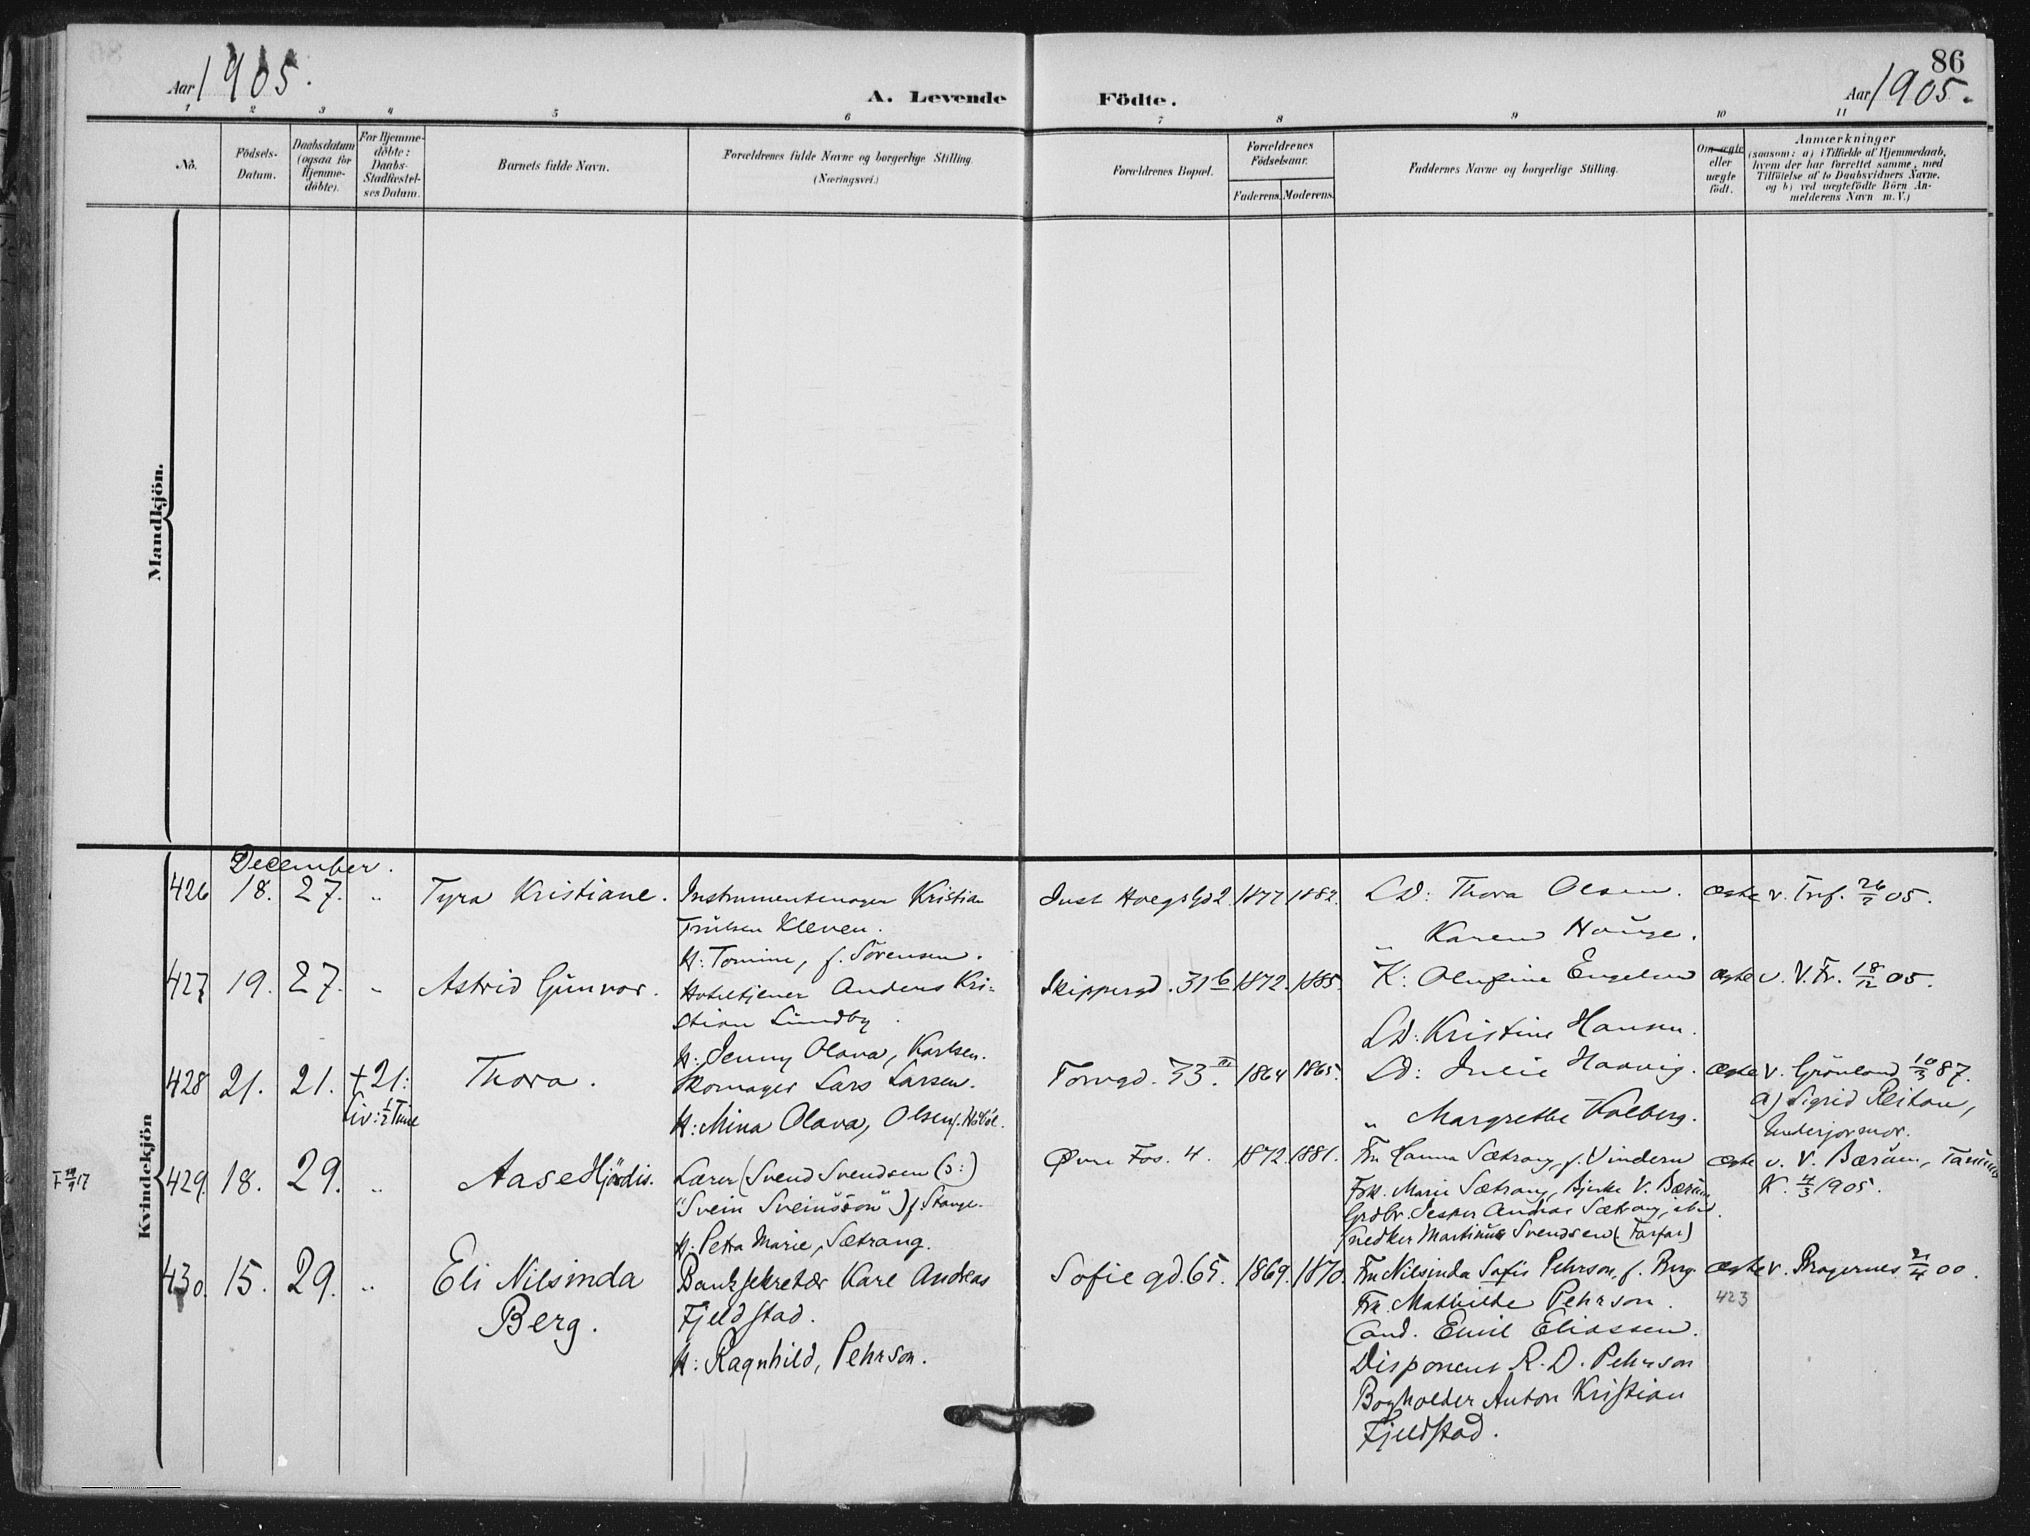 86
Aar 1905.
A. Levende Födte.
Aar 1905.
1 2 3 4 5 6 7 8 9 10 11
No.
Födsels-Datum.
Daabsdatum (ogsaa for Hjemme-döbte).
For Hjemme-döbte: Daabs-Stadfæstel-ses Datum.
Barnets fulde Navn.
Forældrenes fulde Navne og borgerlige Stilling.
(Næringsvei.)
Forældrenes Bopæl.
Forældrenes Födselsaar.
Faderens. Moderens.
Faddernes Navne og borgerlige Stilling.
Om ægte eller uægte födt.
Anmærkninger
(saasom: a) i Tilfælde af Hjemmedaab, hvem der har forrettet samme, med Tilföielse af to Daabsvidners Navne. og b) ved uægtefödte Börn An-melderens Navn m. V.)
Mandkjön.
Kvindekjön
December.
426 18. 27. " Tyra Kristiane. Instrumentmager Kristian
Trulsen Kleven.
H: Tomine, f. Sörensen.
Just Hoegs Gd 2 1877 1882. LD: Thora Olsen. ægte v. Tref. 26/7 05.
" Karen Hauge.
427 19. 27. " Astrid Gunvor. Hoteltjener Anders Kri-
stian Lundby.
H: Jenny Olava, Karlsen.
Skippergd. 31 b 1872. 1885. K: Olufine Engelsen ægte v. V. Fr. 18/12 05.
LD: Kristine Hansen.
428 21. 21. +21: Thora. Skomager Lars Larsen.
Liv: 1/2 Time H: Mina Olava, Olsen f. Höböl.
Torvgd. 33 III. 1864 1865. LD: Julie Haavig. ægte v. Grönland 10/3 87.
" Margrethe Kolberg. a) Sigrid Reitan,
Underjormor.
429 18. 29. " Aase Hjördis. Lærer (Svend Svendsen (ɔ:)
"Svein Sveinssön") f. Stange.
H: Petra Marie, Sætrang.
Øvre Fos. 4. 1872. 1881. Fru Hanna Sætrang, f. Vindern ægte v. V. Bærum, Tanum
Frk. Marie Sætrang, Bjerke V. Bærum K. 4/3 1905.
Grdbr. Jesper Andreas Sætrang,
Snedker Martinus Svendsen (Farfar)
430. 15. 29. " Eli Nilsinda
Berg.
Banksekretær Karl Andreas
Fjeldstad.
H: Ragnhild, Pehrson.
Sofie gd. 65. 1869. 1870. Fru Nilsinda Sofie Pehrson, f. Berg. ægte v. Bragernes 21/4 00.
Frk. Mathilde Pehrson. 423
Cand. Emil Eliassen.
Disponent R. D. Pehrson
Bogholder Anton Kristian
Fjeldstad.